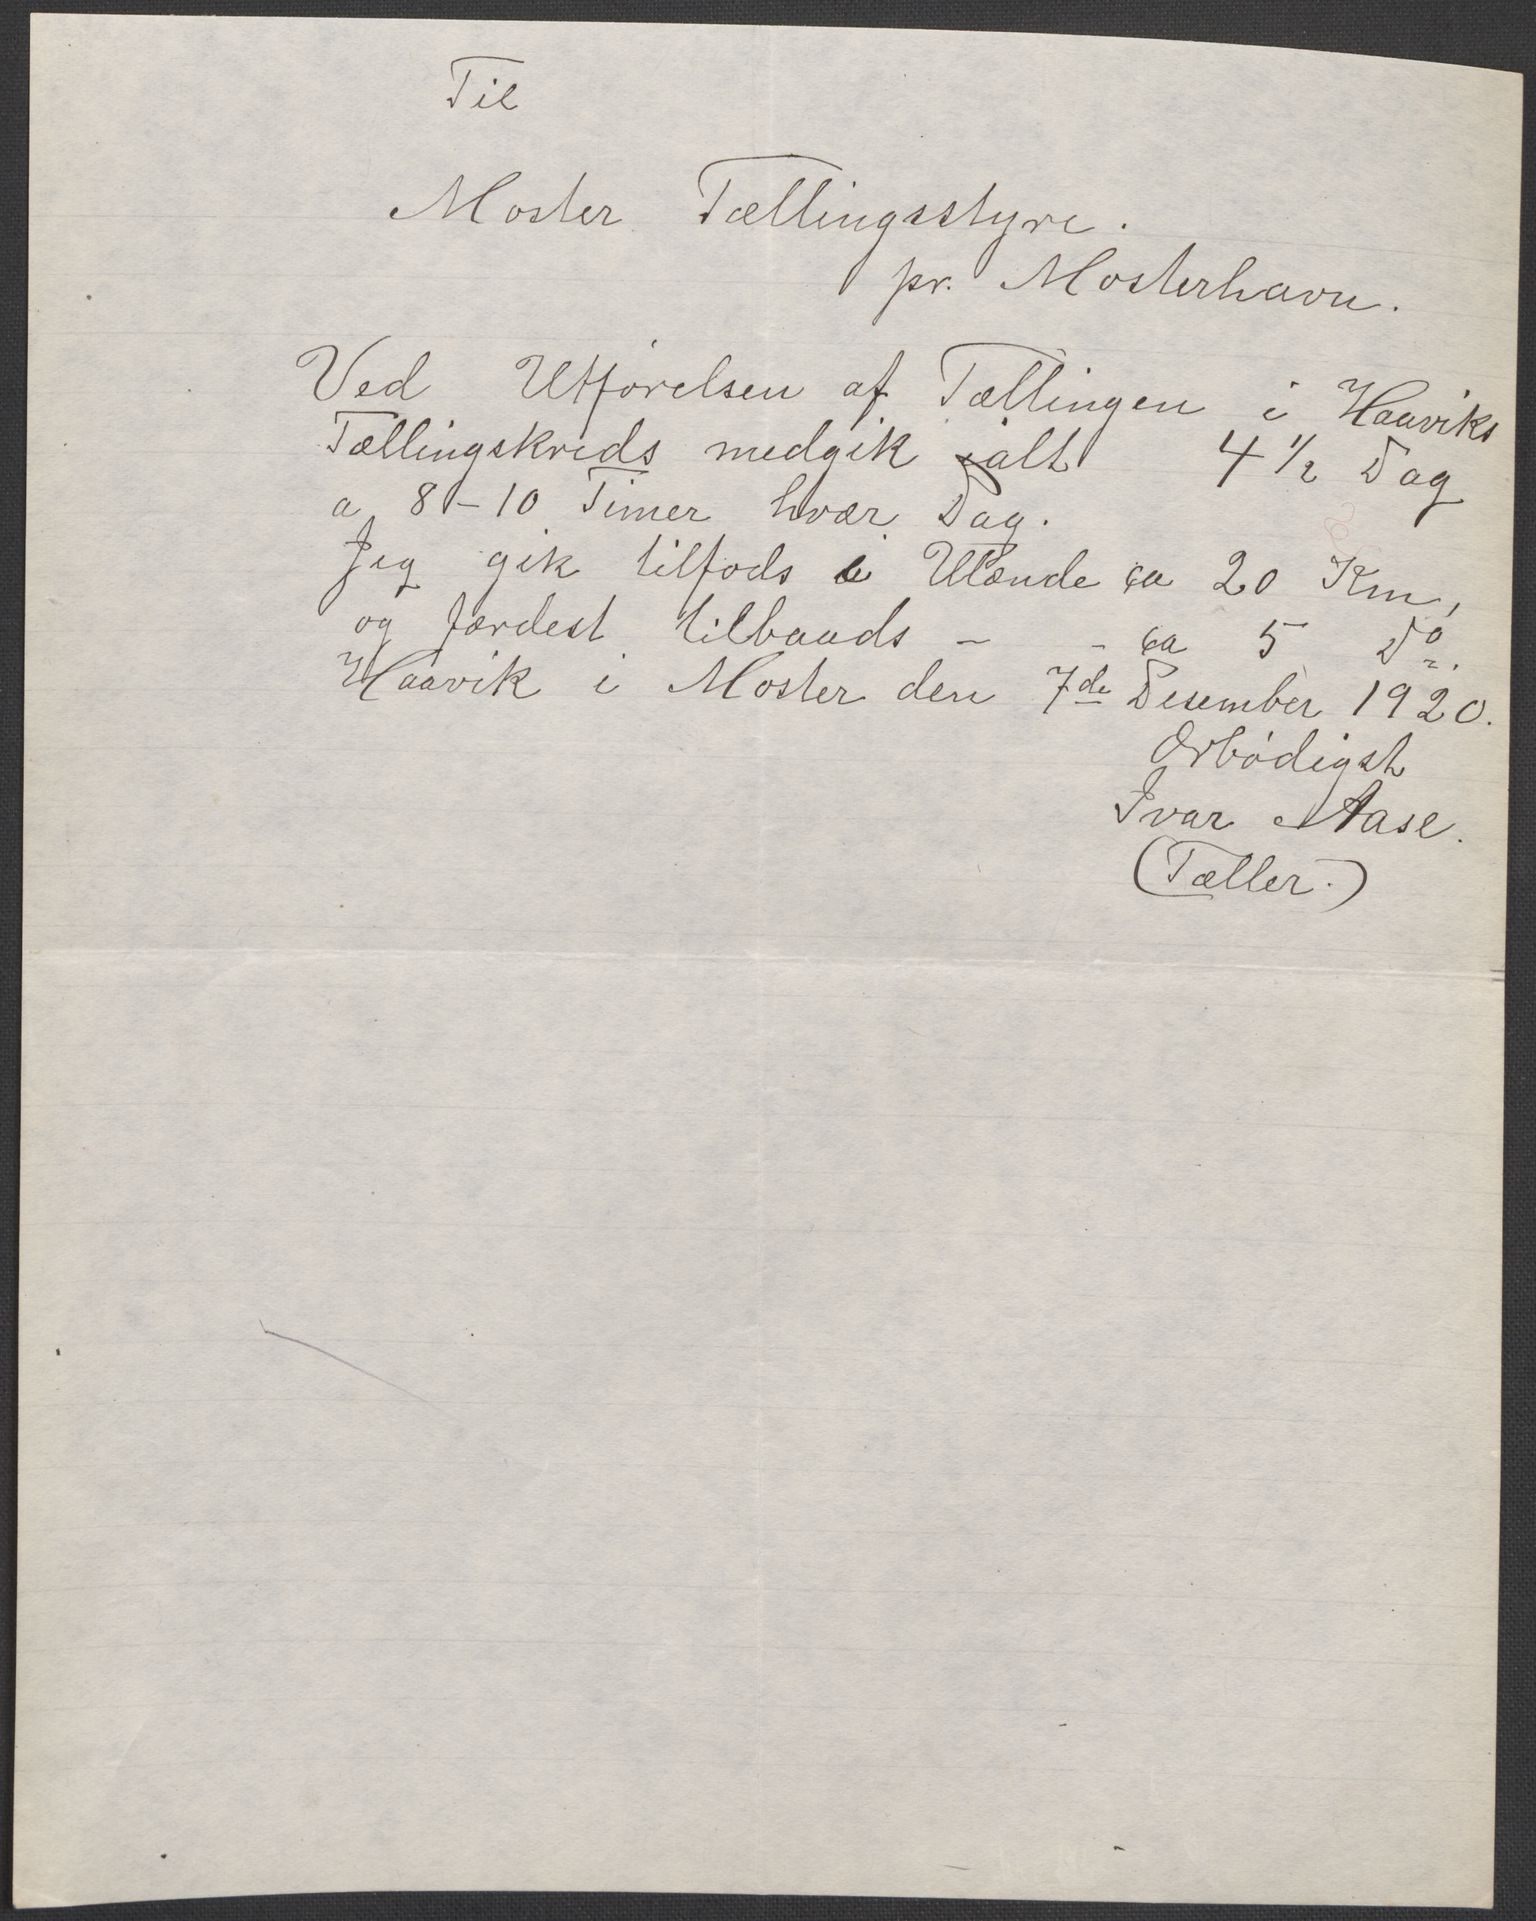 Til
Moster Tællingsstyre.
pr. Mosterhavn.
Ved Utførelsen af Tællingen i Haaviks
Tællingskreds medgik ialt 4 1/2 Dag
a 8-10 Timer hvær Dag.
Jeg gik tilfods i Ulænde ca 20 Km,
og færdest tilbaads - - ca 5 Do.
Haavik i Moster den 7de Desember 1920.
Ærbødigst
Ivar Aase.
(Tæller.)